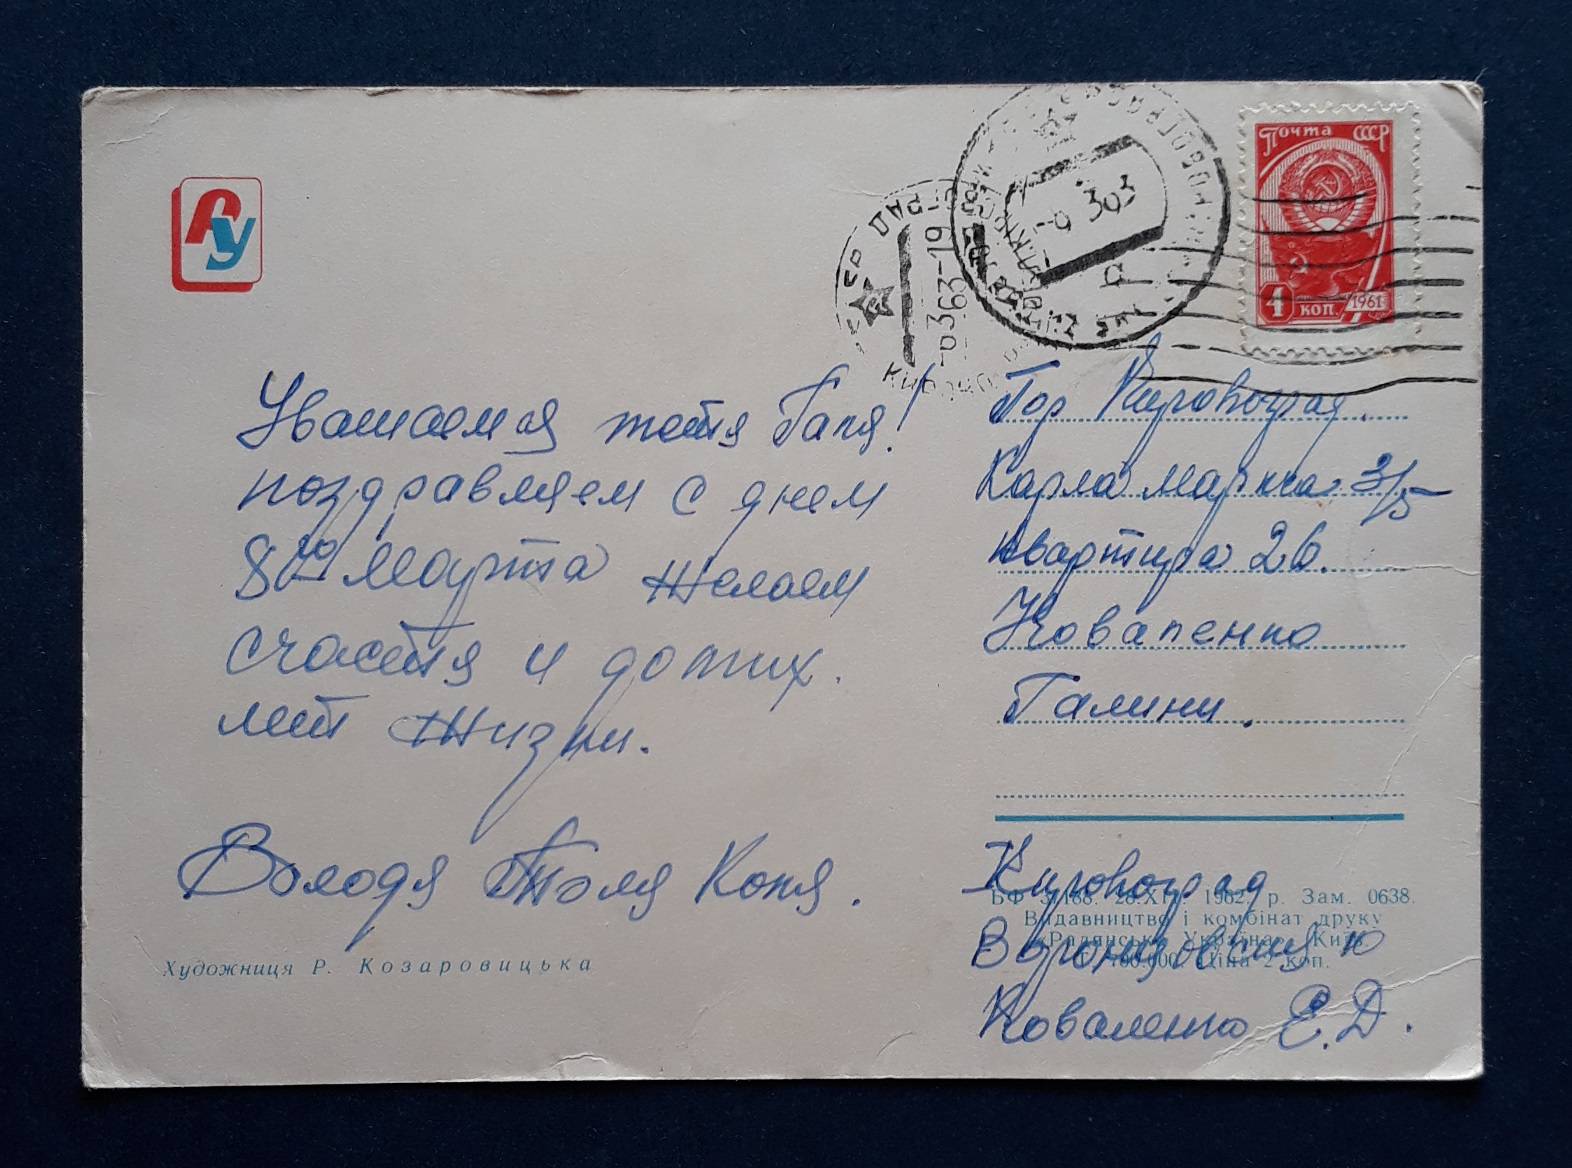 РУ
Почта СССР
4 коп. 1961
-6 3 63-19
-6 363
Уважаемая тётя Галя!
поздравляем с днем
8го Марта Желаем
счастья и долгих.
лет Жизни.
Володя Толя Коля.
Художниця Р. Козаровицька
Гор Кировоград.
Карла Маркса 3/5
квартира 26.
Коваленко
Галини.
Кировоград
БФ 1962 р. Зам. 0638.
Видавництво і комбінат друку
«Радянська Україна», Київ
100.000. Ціна 2 коп.
Коваленко Е.Д.